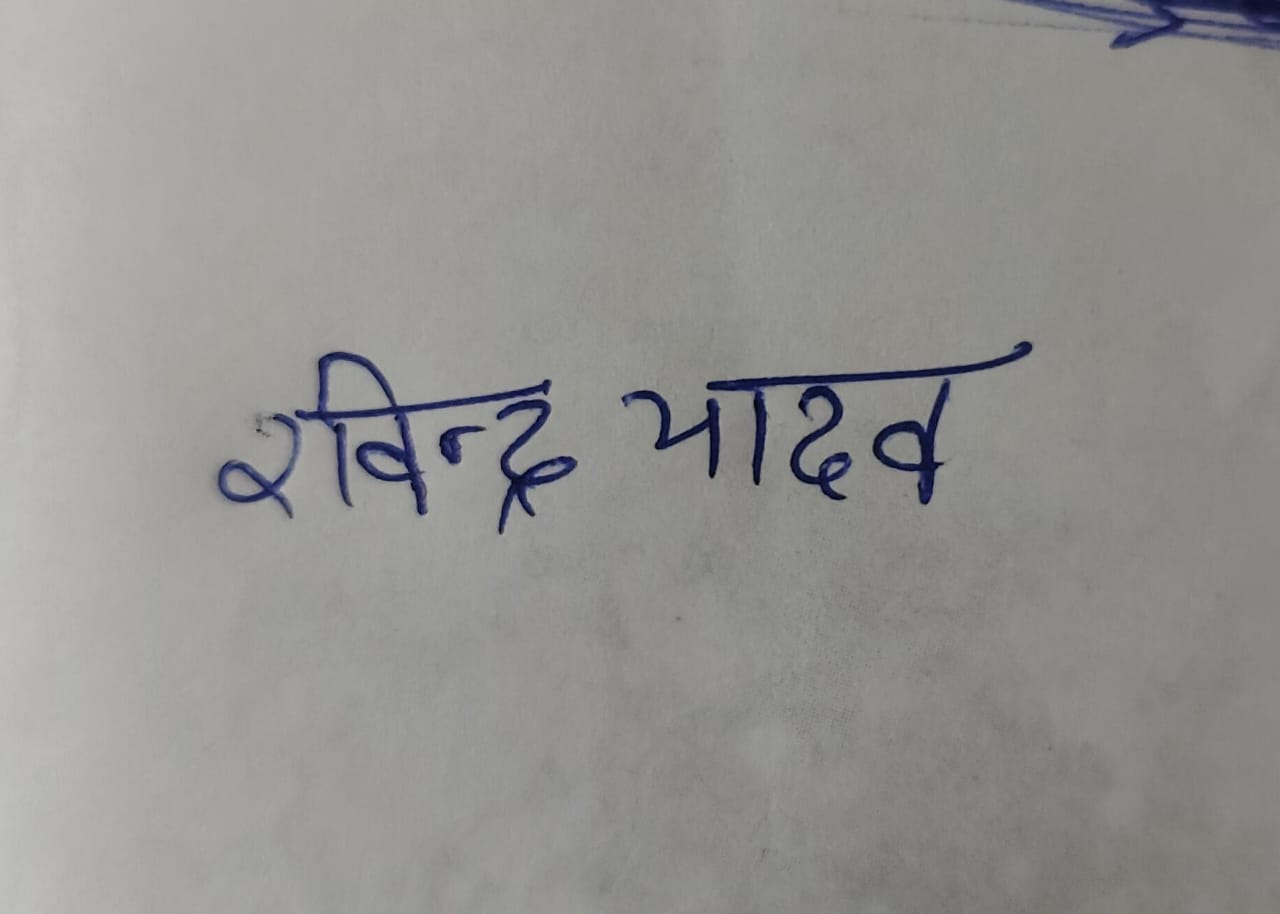 रविन्द्र यादव